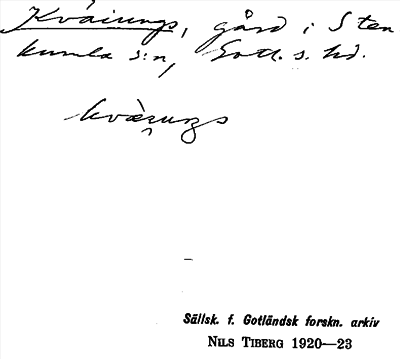 Kvärungs, gård i Sten
kumla s:n, Gotl. s. hd.
kvärungs
Sällsk. f. Gotländsk forskn. arkiv
NILS TIBERG 1920—23